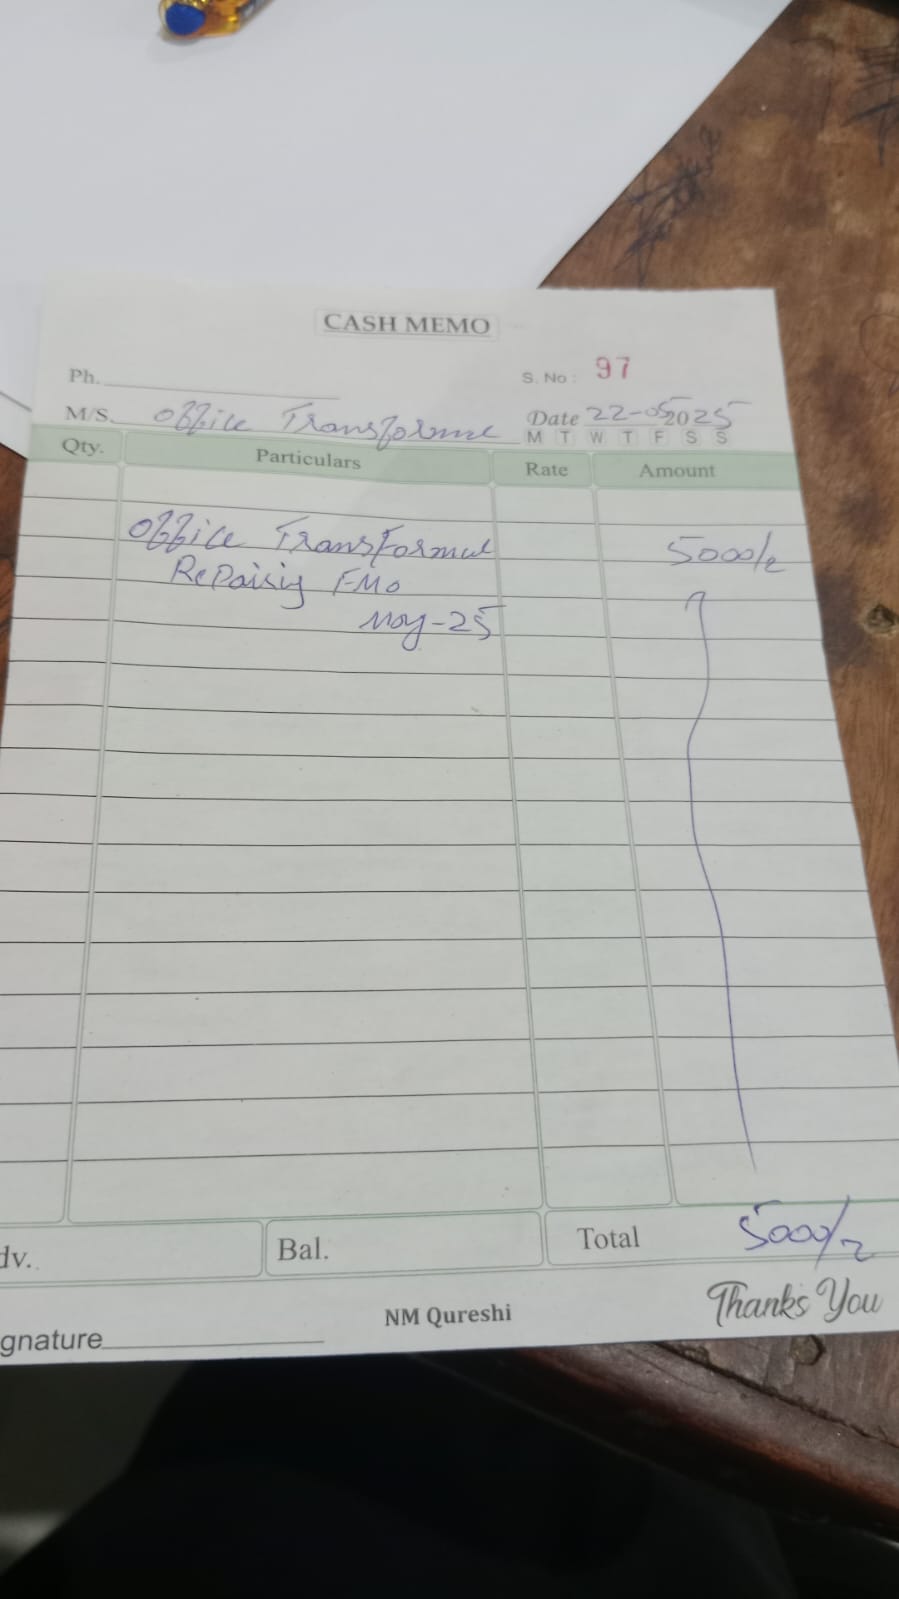 CASH MEMO
Ph.
S. No: 97
M/S. Office Transforme Date 22-05 2025
M T W T F S S
Qty. Particulars Rate Amount
Office Transformul 5000/2
RePaisiy FMo
May-25
dv. Bal. Total 5000/2
gnature NM Qureshi Thanks You